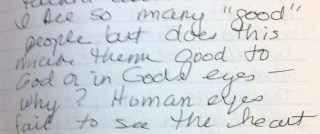 I see so many "good"
people but does this
make them good to
God or in Gods eyes –
why? Human eyes
fail to see the heart